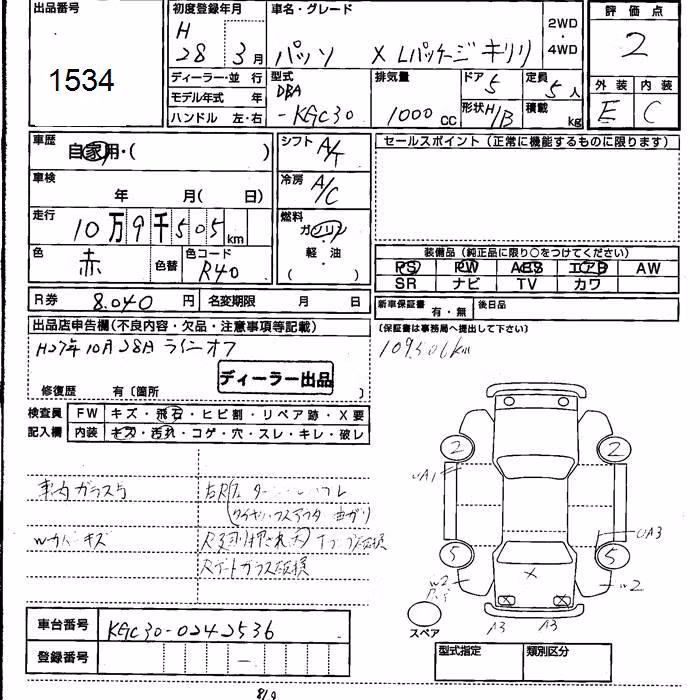 出品番号
1534
初度登録年月
H
28 3月
車名・グレード
パッソ X Lパッケージ キリリ
2WD
・
4WD
評価点
2
ディーラー・並行
モデル年式 年
ハンドル 左・右
型式
DBA
-KGC30
排気量
1000cc
ドア
5
形状 H/B
定員
5人
積載
kg
外装 内装
E C
車歴
自家用・( )
シフト
A/T
セールスポイント(正常に機能するものに限ります)
車検
年 月( 日)
冷房
A/C
走行
10万9千505km
燃料
ガソリン
軽・油
( )
色
赤
色替
色コード
R40
装備品(純正品に限り○をつけてください)
PS PW ABS エアB AW
SR ナビ TV カワ
R券 8.040円 名変期限 月 日
新車保証書 有・無
後日品
出品店申告欄(不良内容・欠品・注意事項等記載)
(保証書は事務局へ提出して下さい)
H27年10月28日 ラインオフ
109,506km
ディーラー出品
修復歴 有〔箇所 〕
検査員 FW キズ・飛石・ヒビ割・リペア跡・X要
記入欄 内装 キズ・汚れ・コゲ・穴・スレ・キレ・破レ
車内ガラス
Wカバーキズ
曲がり
Rゲートガラス
2 2
UA1
UA3
5 5
W2
W2
X
X X
A3 A3
スペア
車台番号 KGC30-0242536
登録番号 -
型式指定 類別区分